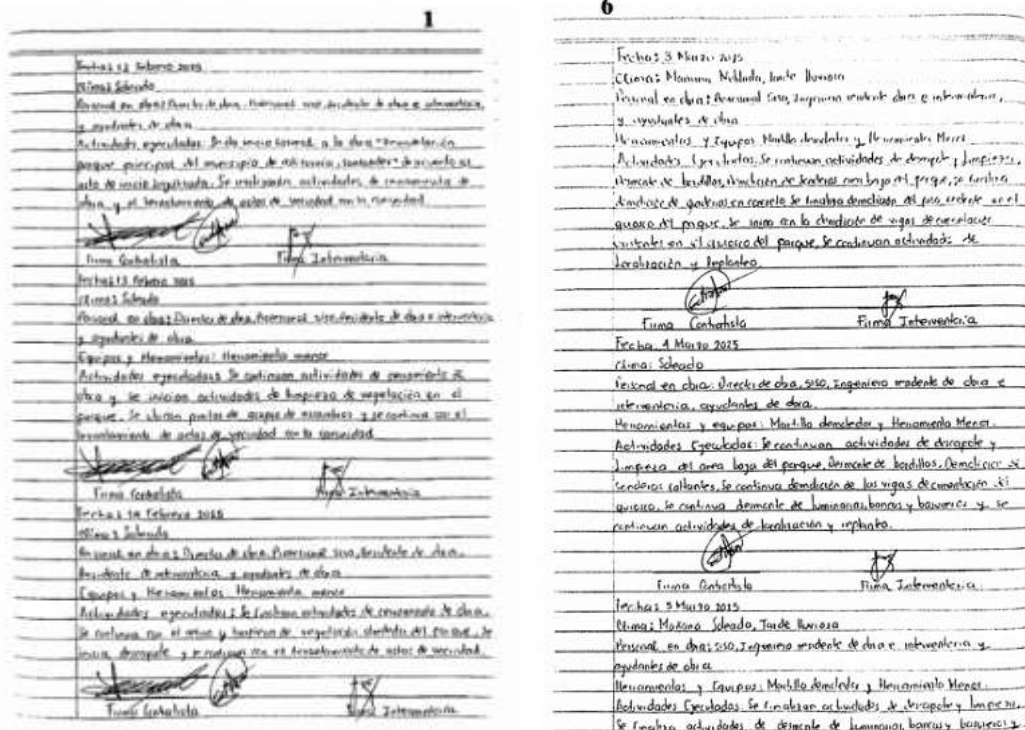 1
Fecha: 12 Febrero 2025
Clima: Soleado
Personal en obra: Director de obra, Profesional siso, Residente de obra e interventoria
y ayudantes de obra
Actividades ejecutadas: Se da inicio a la obra
parque principal del municipio de Santander de acuerdo al
acta de inicio Se realizarán actividades de cerramiento de
obra y el levantamiento de actas de vecindad con la comunidad
Firma Contratista Firma Interventoria
Fecha: 13 Febrero 2025
Clima: Soleado
Personal en obra: Director de obra, Profesional siso, Residente de obra e interventoria
y ayudantes de obra
Equipos y Herramientas: Herramienta menor
Actividades ejecutadas: Se continuan actividades de cerramiento de
obra y se inician actividades de limpieza de vegetación en el
parque. Se ubican puntos de acopio de escombros y se continua con el
levantamiento de actas de vecindad con la comunidad
Firma Contratista Firma Interventoria
Fecha: 14 Febrero 2025
Clima: Soleado
Personal en obra: Director de obra, Profesional siso, Residente de obra,
Residente de interventoria y ayudantes de obra
Equipos y Herramientas: Herramienta menor
Actividades ejecutadas: Se finalizan actividades de cerramiento de obra.
Se continua con el retiro y de vegetación dentro del parque. Se
inicia descapote y se continua con el levantamiento de actas de vecindad.
Firma Contratista Firma Interventoria
6
Fecha: 3 Marzo 2025
Clima: Mañana Nublada, tarde lluviosa
Personal en obra: Profesional siso, Ingeniero residente obra e interventoria,
y ayudantes de obra
Herramientas y Equipos: Martillo demoledor y Herramienta Menor
Actividades Ejecutadas: Se continuan actividades de descapote y limpieza,
desmonte de bordillos, demolición de senderos zona baja del parque, se finaliza
demolición de graderias en concreto. Se finaliza demolición del piso en el
quiosco del parque. Se inicia con la demolición de vigas de cimentación
existentes en el quiosco del parque. Se continuan actividades de
localización y Replanteo
Firma Contratista Firma Interventoria
Fecha: 4 Marzo 2025
Clima: Soleado
Personal en obra: Director de obra, SISO, Ingeniero residente de obra e
interventoria, ayudantes de obra.
Herramientas y equipos: Martillo demoledor y Herramienta Menor.
Actividades Ejecutadas: Se continuan actividades de descapote y
limpieza del area baja del parque, Desmonte de bordillos, Demolición de
senderos faltantes, Se continua demolición de las vigas de cimentación del
quiosco, Se continua desmonte de luminarias, bancas y basureros y se
continuan actividades de localización y replanteo.
Firma Contratista Firma Interventoria
Fecha: 5 Marzo 2025
Clima: Mañana Soleado, Tarde lluviosa
Personal en obra: SISO, Ingeniero residente de obra e interventoria y
ayudantes de obra
Herramientas y Equipos: Martillo demoledor y Herramienta Menor.
Actividades Ejecutadas: Se finalizan actividades de descapote y limpieza,
Se finaliza actividades de desmonte de luminarias, bancas y basureros y